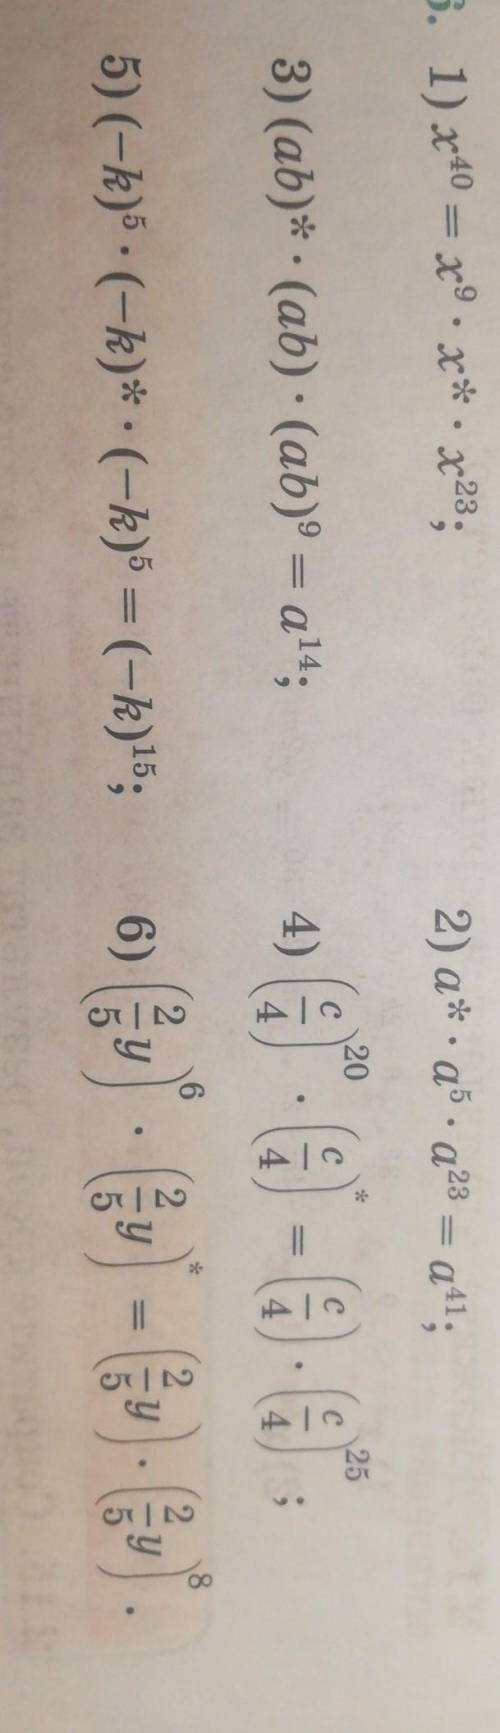 6. 1) x⁴⁰ = x⁹ · x* · x²³; 2) a* · a⁵ · a²³ = a⁴¹;
3) (ab)* · (ab) · (ab)⁹ = a¹⁴; 4) (c/4)²⁰ · (c/4)* = (c/4) · (c/4)²⁵;
5) (−k)⁵ · (−k)* · (−k)⁵ = (−k)¹⁵; 6) (2/5 y)⁶ · (2/5 y)* = (2/5 y) · (2/5 y)⁸.